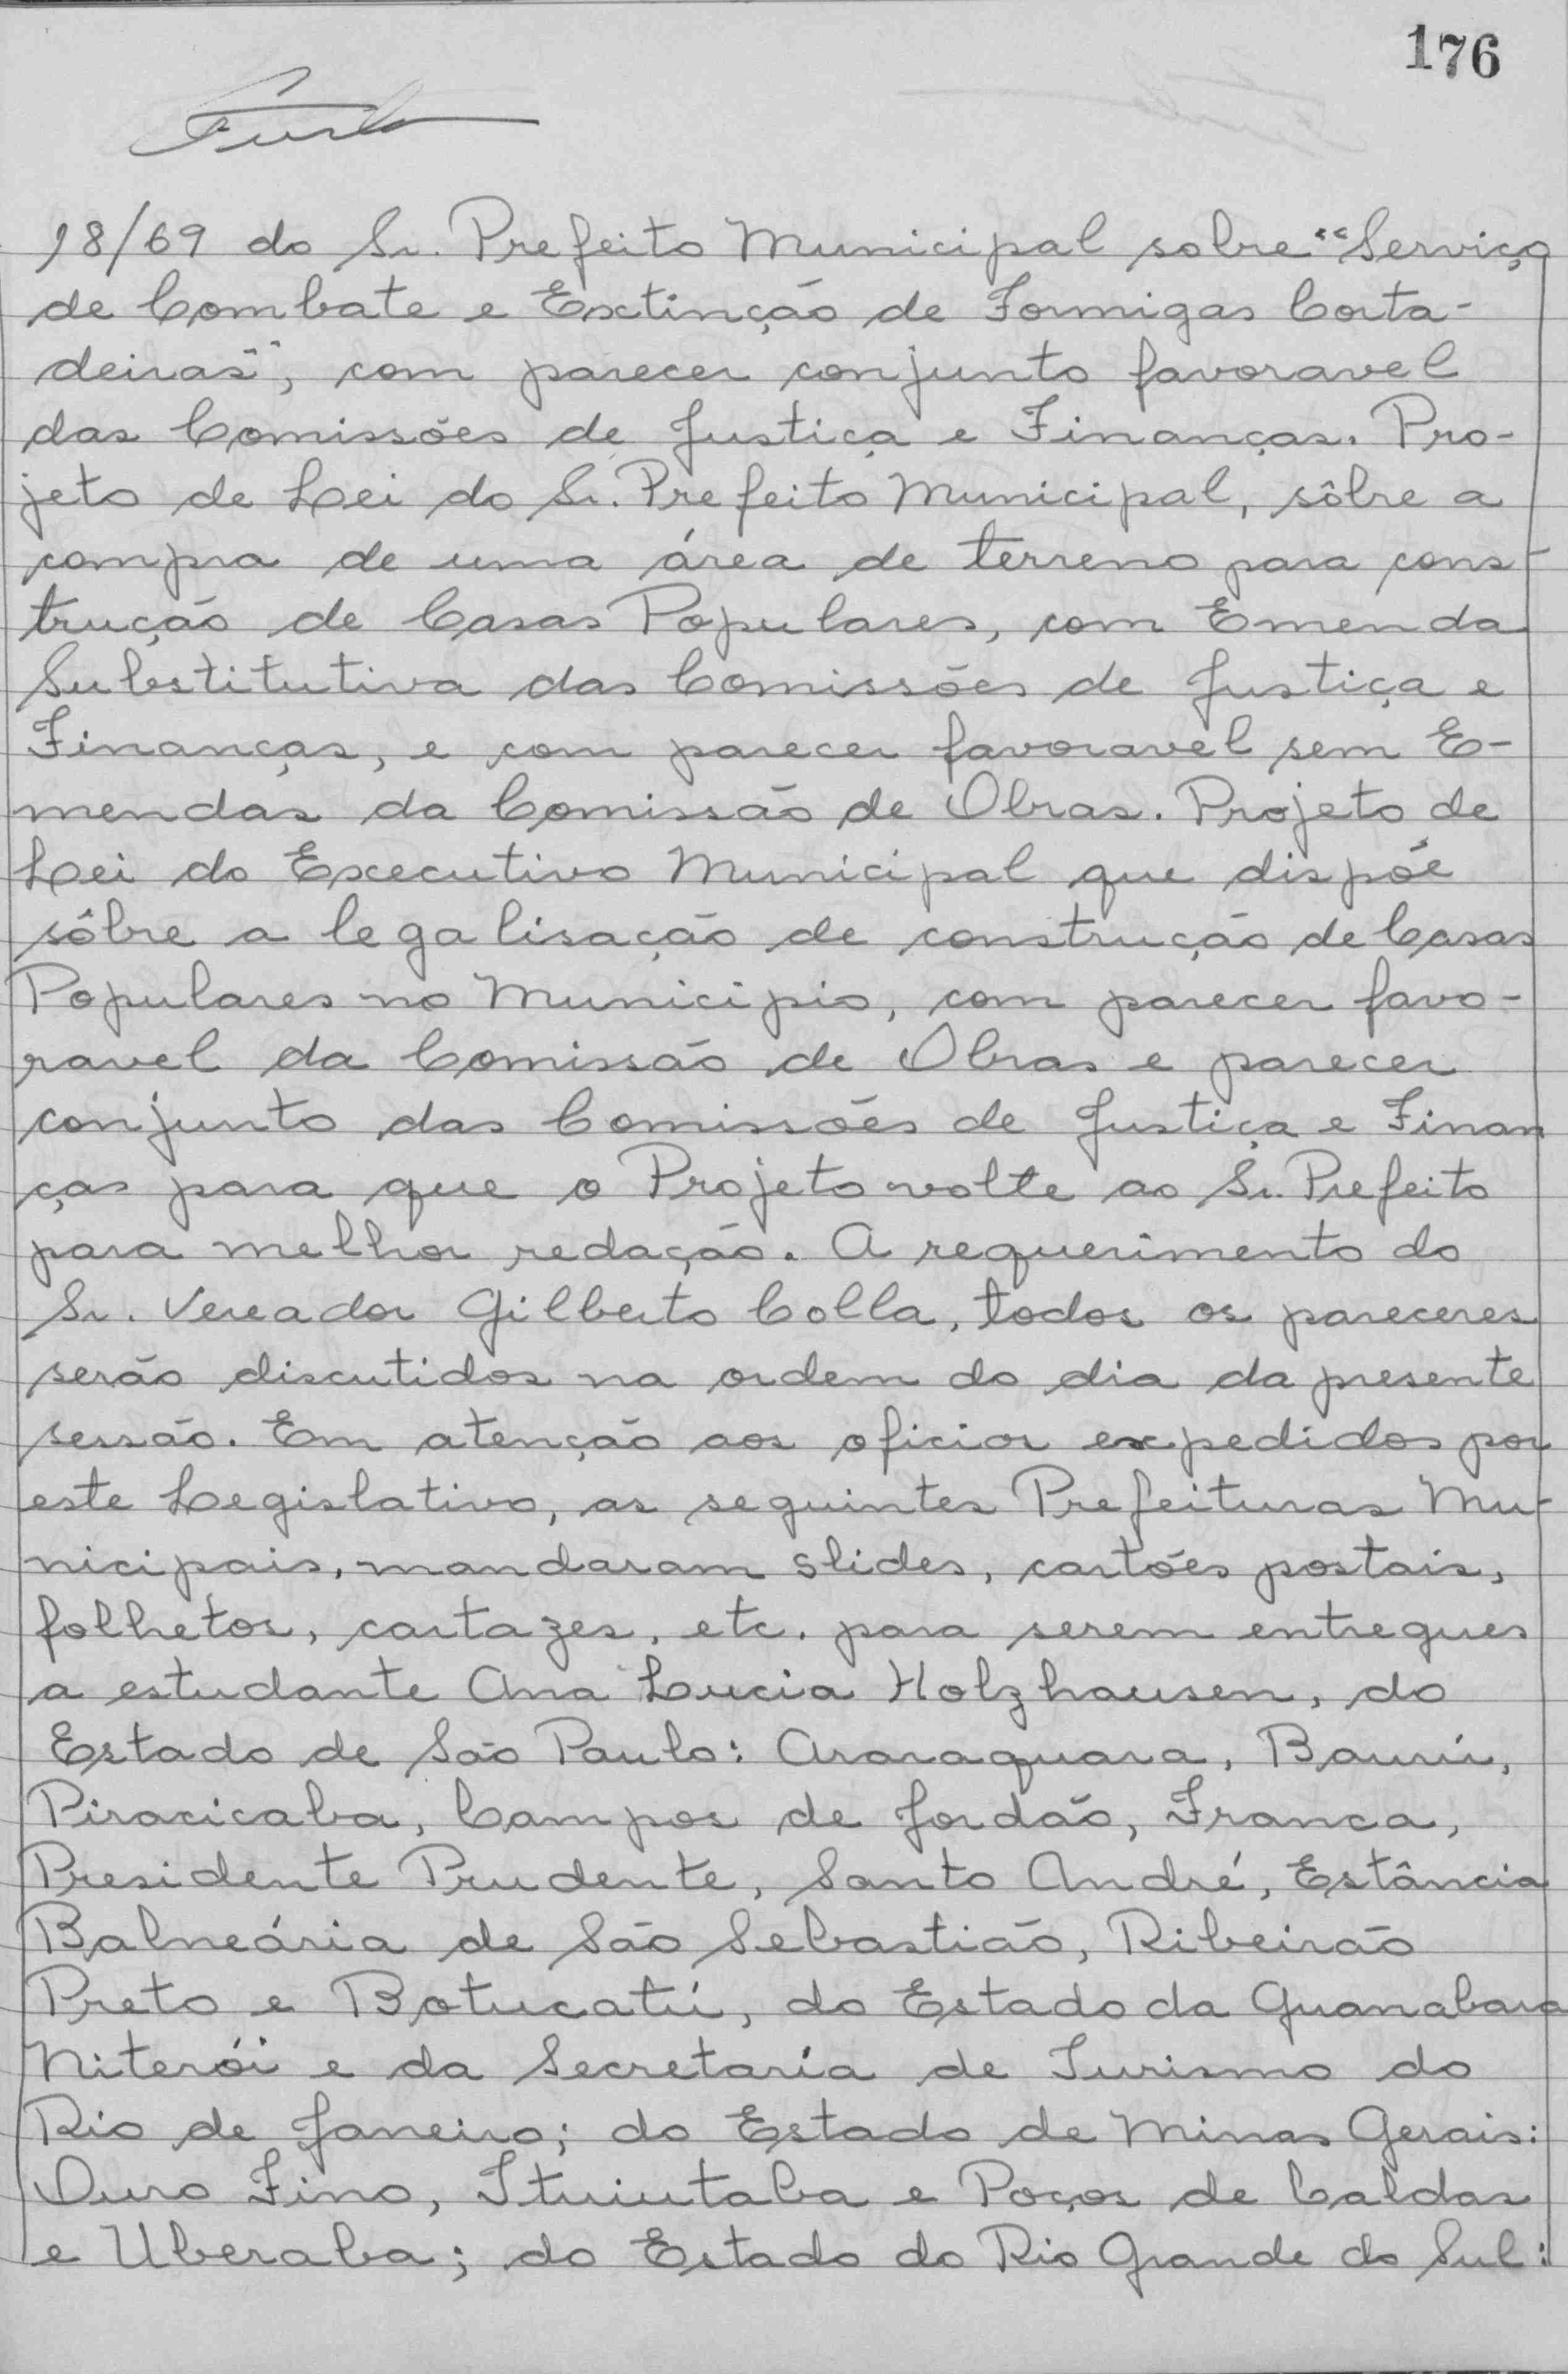 176
18/69 do Sr. Prefeito Municipal sobre "Serviço
de Combate e Extinção de Formigas Corta-
deiras", com parecer conjunto favoravel
das Comissões de Justiça e Finanças. Pro-
jeto de Lei do Sr. Prefeito Municipal, sôbre a
compra de uma área de terreno para cons-
trução de Casas Populares, com Emenda
Substitutiva das Comissões de Justiça e
Finanças, e com parecer favoravel sem E-
mendas da Comissão de Obras. Projeto de
Lei do Executivo Municipal que dispõe
sôbre a legalisação de construção de Casas
Populares no Municipio, com parecer favo-
ravel da Comissão de Obras e parecer
conjunto das Comissões de Justiça e Finan
ças para que o Projeto volte ao Sr. Prefeito
para melhor redação. A requerimento do
Sr. Vereador Gilberto Colla, todos os pareceres
serão discutidos na ordem do dia da presente
sessão. Em atenção aos oficios expedidos por
este Legislativo, as seguintes Prefeituras Mu-
nicipais, mandaram slides, cartões postais,
folhetos, cartazes, etc. para serem entregues
a estudante Ana Lucia Holzhausen, do
Estado de São Paulo: Araraquara, Baurú,
Piracicaba, Campos de Jordão, Franca,
Presidente Prudente, Santo André, Estância
Balneária de São Sebastião, Ribeirão
Preto e Botucatú, do Estado da Guanabara
Niterói e da Secretaría de Turismo do
Rio de Janeiro; do Estado de Minas Gerais:
Ouro Fino, Ituiutaba e Poços de Caldas
e Uberaba; do Estado do Rio Grande do Sul: